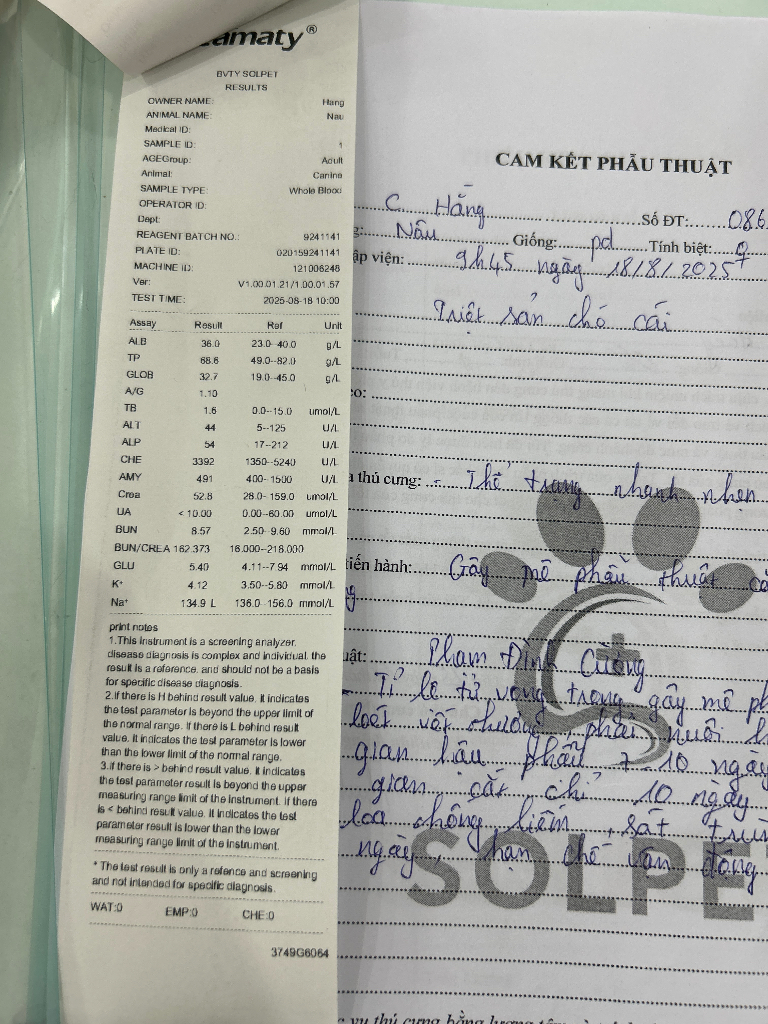 camaty®
BVTY SOLPET
RESULTS
OWNER NAME: Hang
ANIMAL NAME: Nau
Medical ID:
SAMPLE ID: 1
AGEGroup: Adult
Animal: Canine
SAMPLE TYPE: Whole Blood
OPERATOR ID:
Dept:
REAGENT BATCH NO.: 9241141
PLATE ID: 020159241141
MACHINE ID: 121006248
Ver: V1.00.01.21/1.00.01.57
TEST TIME: 2025-08-18 10:00
Assay Result Ref Unit
ALB 36.0 23.0--40.0 g/L
TP 68.6 49.0--82.0 g/L
GLOB 32.7 19.0--45.0 g/L
A/G 1.10
TB 1.6 0.0--15.0 umol/L
ALT 44 5--125 U/L
ALP 54 17--212 U/L
CHE 3392 1350--5240 U/L
AMY 491 400--1500 U/L
Crea 52.8 28.0--159.0 umol/L
UA < 10.00 0.00--60.00 umol/L
BUN 8.57 2.50--9.60 mmol/L
BUN/CREA 162.373 16.000--218.000
GLU 5.40 4.11--7.94 mmol/L
K+ 4.12 3.50--5.80 mmol/L
Na+ 134.9 L 136.0--156.0 mmol/L
print notes
1.This instrument is a screening analyzer,
disease diagnosis is complex and individual, the
result is a reference, and should not be a basis
for specific disease diagnosis.
2.If there is H behind result value, it indicates
the test parameter is beyond the upper limit of
the normal range. If there is L behind result
value, it indicates the test parameter is lower
than the lower limit of the normal range.
3.if there is > behind result value, it indicates
the test parameter result is beyond the upper
measuring range limit of the instrument. If there
is < behind result value, it indicates the test
parameter result is lower than the lower
measuring range limit of the instrument.
* The test result is only a refence and screening
and not intended for specific diagnosis.
WAT:0 EMP:0 CHE:0
3749G6064
CAM KẾT PHẪU THUẬT
C. Hằng Số ĐT: 086
Nâu Giống: pd Tính biệt: ♀
ập viện: 9h45 ngày 18/8/2025
Triệt sản chó cái
eo:
a thú cưng: - Thể trạng nhanh nhẹn
tiến hành: Gây mê phẫu thuật
uật: Phạm Đình Cường
- Tỉ lệ tử vong trong gây mê ph
loét vết thương, phải nuôi
gian hậu phẫu 7-10 ngày
gian cắt chỉ 10 ngày
loa chống liếm, sát trùn
ngày, hạn chế vận động
SOLPE
vụ thú cưng bằng lương tâm